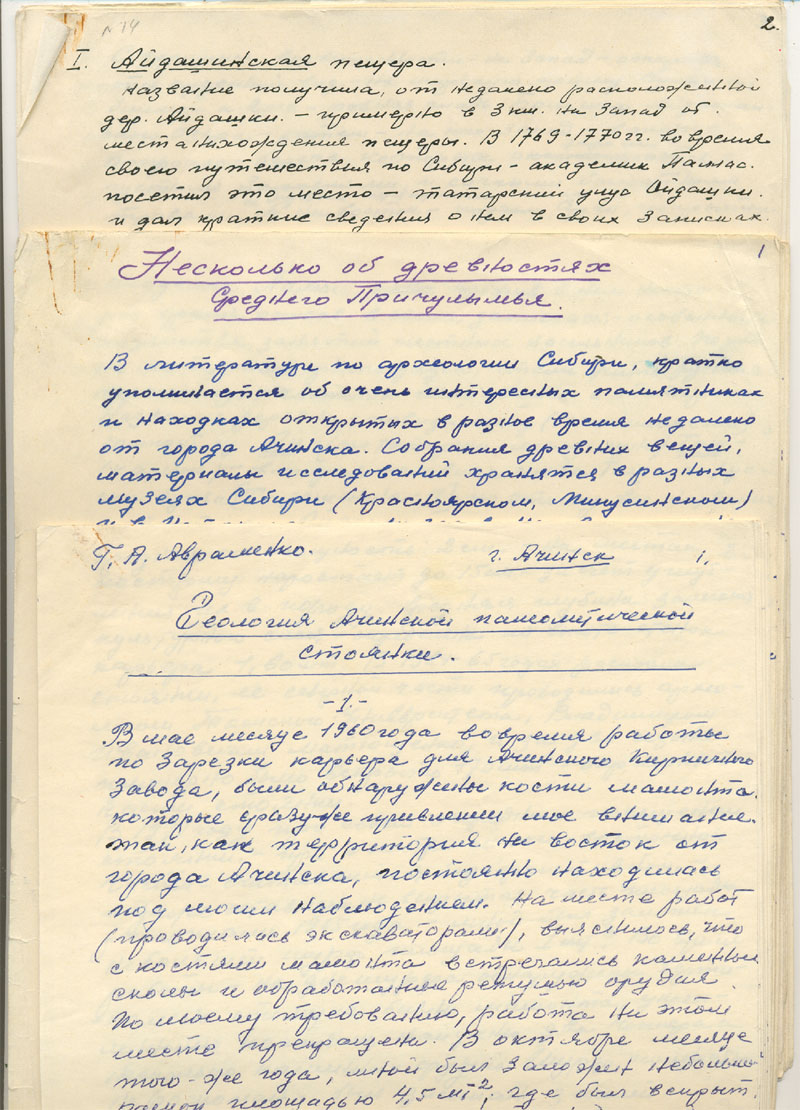 № 14
2.
I. Айдашинская пещера.
Название получила, от недалено расположенной
дер. Айдашки. – примерно в 3 км. на Запад от
местанихождения пещеры. В 1769-1770 гг. во время
своего путешествия по Сибири – академик Паллас.
посетил это место – татарский улус Айдашки.
и дал краткие сведения о нем в своих Записках.
1
Несколько об древностях
Среднего Причулымья.
В литературе по археологии Сибири, кратко
упоминается об очень интересных памятниках
и находках открытых в разное время недалеко
от города Ачинска. Собрания древних вещей,
материалы исследований хранятся в разных
музеях Сибири (Красноярском, Минусинском)
Г. А. Авраменко.
г. Ачинск
1.
Геология Ачинской палеолитической
стоянки.
-1.-
В мае месяце 1960 года во время работы
по Зарезки карьера для Ачинского Кирпичного
Завода, были обнаружены кости мамонта.
которые сразу-же привлекли мое внимание.
так, как территория на восток от
города Ачинска, постоянно находилась
под моим наблюдением. На месте работ
(проводились экскаваторами), выяснилось, что
с костями мамонта встречались каменные
сколы и обработанные ретушью орудия.
По моему требованию, работа на этом
месте прекращена. В октябре месяце
того-же года, мной был Заложен небольшой
площадью 4,5 м², где был вскрыт.